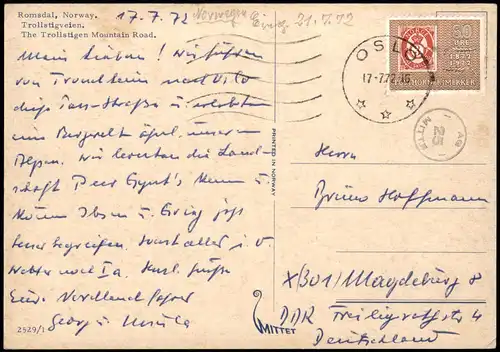 Romsdal, Norway.
Trollstigveien.
The Trollstigen Mountain Road.
17.7.72
Norwegen
Eing. 21.7.72
Meine Lieben! Wir fuhren
von Trondheim nach Oslo
diese Tour-Straße u. erlebten
eine Bergwelt ähnl. unseren
Alpen. Wir lernten die Land-
schaft Peer Gynt's kennen u.
können Ibsen u. Grieg jetzt
besser begreifen. Sonst alles i. O.
Wetter noch Ia. Herzl. Grüße
Eure
Georg u. Ursula
2529/1
PRINTED IN NORWAY
MITTET
OSLO
17-7.72.16
50 ØRE
1872
1972
NORGE
MITTE
25
Herrn
Bruno Hoffmann
X/301/ Magdeburg 8
DDR Freiligrathstr 4
Deutschland